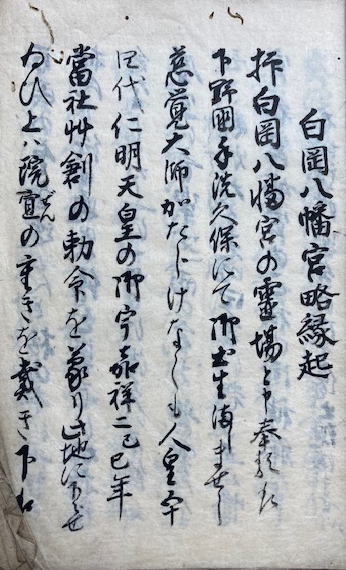 白岡八幡宮略縁起
抑白岡八幡宮の霊場と申奉るは
下野國手洗久保にて御出生ましませし
慈覚大師かたじけなくも人皇五十
四代仁明天皇の御宇嘉祥二己巳年
當社艸創の勅令を蒙り此地に下らせ
給ひ上ハ院宣の重きを戴き下は